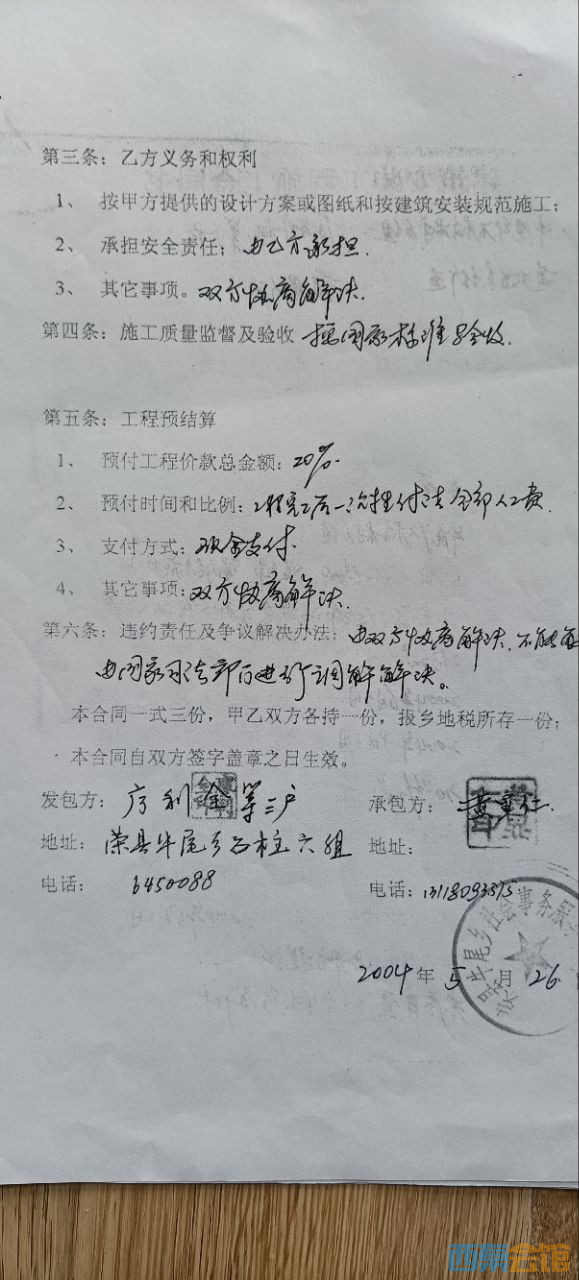 第三条：乙方义务和权利
1、 按甲方提供的设计方案或图纸和按建筑安装规范施工；
2、 承担安全责任；由乙方承担.
3、 其它事项。双方协商解决.
第四条：施工质量监督及验收 按国家标准验收.
第五条：工程预结算
1、 预付工程价款总金额：20%.
2、 预付时间和比例：工程完工后一次性付清全部人工费.
3、 支付方式：现金支付.
4、 其它事项：双方协商解决.
第六条：违约责任及争议解决办法：由双方协商解决.不能
由国家司法部门进行调解解决。
本合同一式三份，甲乙双方各持一份，报乡地税所存一份；
本合同自双方签字盖章之日生效。
发包方： 利金等三户
承包方：
地址：荣县牛尾乡石柱六组
地址：
电话： 6450088
电话：
2004年5月26
牛尾乡社会事务
西祠会馆